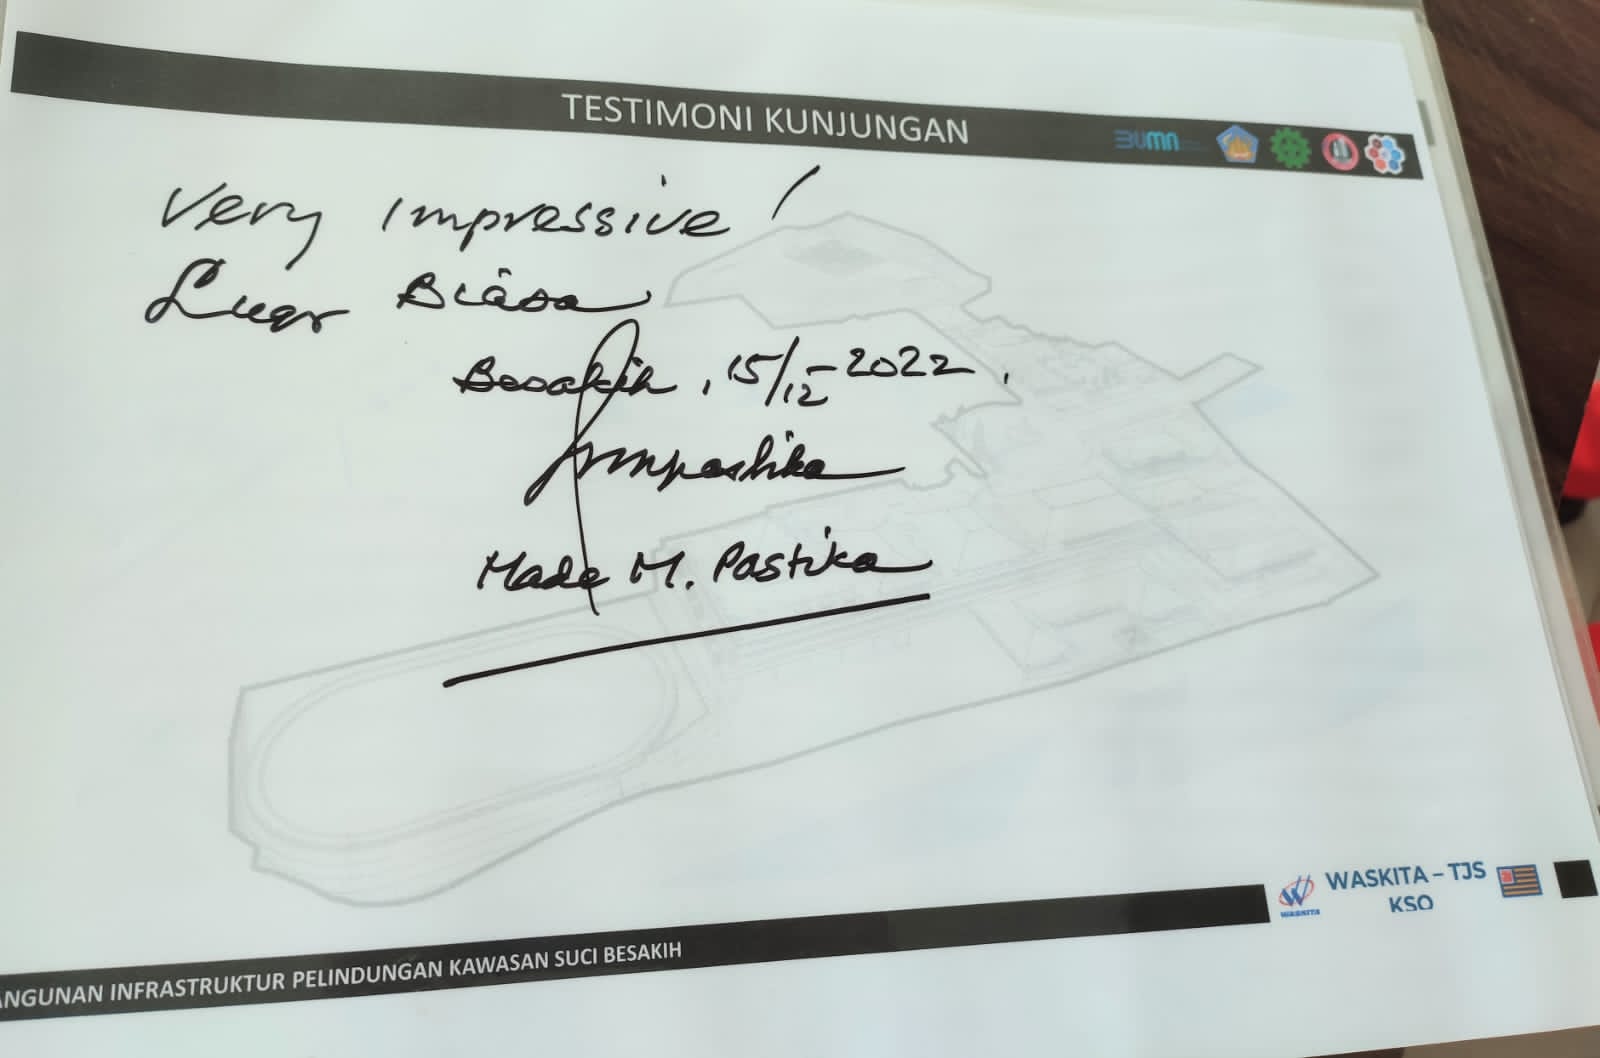 TESTIMONI KUNJUNGAN
BUMN
Very Impressive!
Luar Biasa
Besakih, 15/12-2022.
Made M. Pastika
WASKITA
WASKITA – TJS
KSO
ANGUNAN INFRASTRUKTUR PELINDUNGAN KAWASAN SUCI BESAKIH